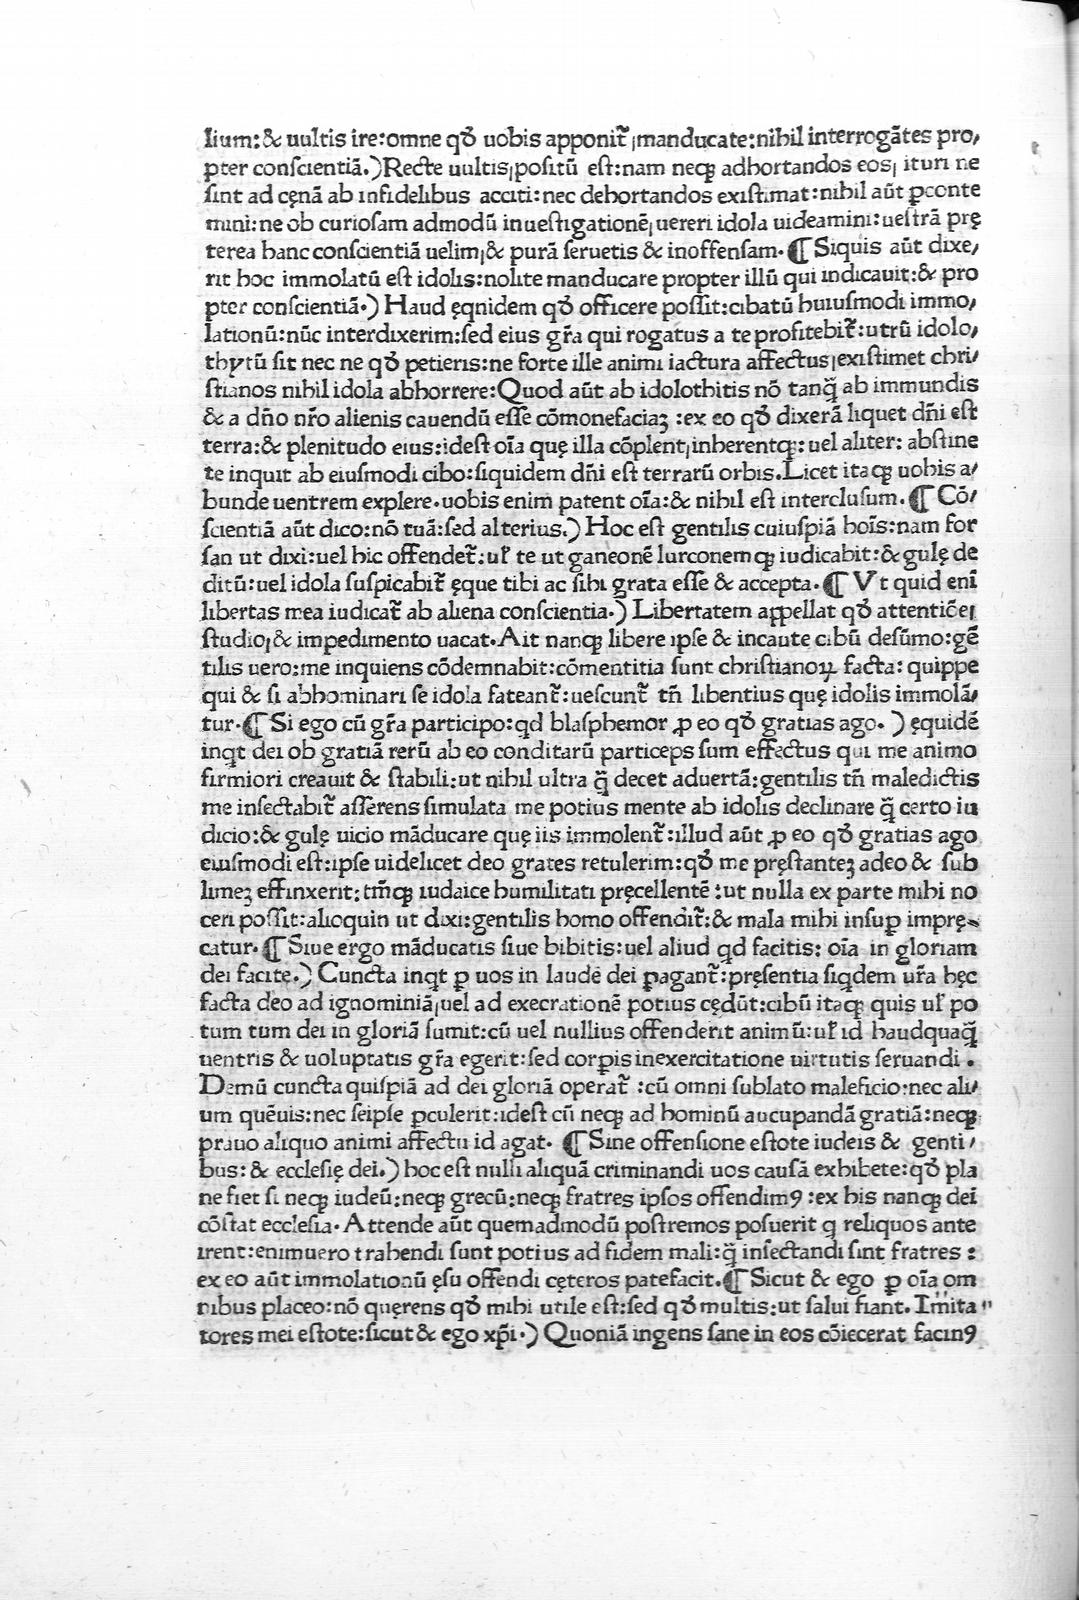 lium:& uultis ire:omne qđ uobis apponit᷑ ¡manducate:nihil interrogãtes pro,
pter conſcientiã.)Recte uultis¡poſitũ eſt:nam neqꝫ adhortandos eos¡ ituri ne
ſint ad cęnã ab infidelibus acciti:nec dehortandos exiſtimat:nihil aũt ꝑconte
mini:ne ob curioſam admodũ inueſtigationẽ¡ uereri idola uideamini:ueſtrã prę
terea hanc conſcientiã uelim¡& purã ſeruetis & inoffenſam.¶Siquis aũt dixe,
rit hoc immolatũ eſt idolis:nolite manducare propter illũ qui indicauit:& pro
pter conſcientiã.) Haud ęqnidem qđ officere poſſit:cibatũ huiuſmodi immo,
lationũ:nũc interdixerim:ſed eius gr̃a qui rogatus a te profitebit᷑:utrũ idolo,
thytũ ſit nec ne qđ petieris:ne forte ille animi iactura affectus¡exiſtimet chri,
ſtianos nihil idola abhorrere:Quod aũt ab idolothitis nõ tanq̃ ab immundis
& a dño nr̃o alienis cauendũ eſſe cõmonefaciaꝫ :ex eo qđ dixerã liquet dñi eſt
terra:& plenitudo eius:ideſt oĩa quę illa cõplent¡inherentqꝫ:uel aliter: abſtine
te inquit ab eiuſmodi cibo:ſiquidem dñi eſt terrarũ orbis.Licet itaqꝫ uobis a,
bunde uentrem explere.uobis enim patent oĩa:& nihil eſt intercluſum.¶Cõ,
ſcientiã aũt dico:nõ tuã:ſed alterius.) Hoc eſt gentilis cuiuſpiã hoĩs:nam for
ſan ut dixi:uel hic offendet᷑:ul̉ te ut ganeonẽ lurconemqꝫ iudicabit:& gulę de
ditũ:uel idola ſuſpicabit᷑ ęque tibi ac ſibi grata eſſe & accepta.¶Vt quid enĩ
libertas mea iudicat᷑ ab aliena conſcientia.) Libertatem appellat qđ attentiõe¡
ſtudio¡& impedimento uacat.Ait nanqꝫ libere ipſe & incaute cibũ deſũmo:gẽ
tilis uero:me inquiens cõdemnabit:cõmentitia ſunt chriſtianoꝝ facta:quippe
qui & ſi abhominari ſe idola fateant᷑:ueſcunt᷑ tñ libentius quę idolis immolã,
tur.¶Si ego cũ gr̃a participo:qd blaſphemor ꝓ eo qđ gratias ago. ) ęquidẽ
inqt dei ob gratiã rerũ ab eo conditarũ particeps ſum effectus qui me animo
firmiori creauit & ſtabili:ut nihil ultra q̃ decet aduertã:gentilis tñ maledictis
me inſectabit᷑ aſſerens ſimulata me potius mente ab idolis declinare q̃ certo iu
dicio:& gulę uicio mãducare quę iis immolent᷑:illud aũt ꝓ eo qđ gratias ago
eiuſmodi eſt:ipſe uidelicet deo grates retulerim:qđ me pręſtanteꝫ adeo & ſub
limeꝫ effinxerit:tm̃qꝫ iudaice humilitati pręcellentẽ :ut nulla ex parte mihi no
ceri poſſit:alioquin ut dixi:gentilis homo offendit᷑:& mala mihi inſuꝑ imprę,
catur.¶Siue ergo mãducatis ſiue bibitis:uel aliud qd facitis: oĩa in gloriam
dei facite.) Cuncta inqt ꝑ uos in laudẽ dei ꝑagant᷑:pręſentia ſiqdem ur̃a hęc
facta deo ad ignominiã¡uel ad execrationẽ potius cędũt:cibũ itaqꝫ quis ul̉ po
tum tum dei in gloriã ſumit:cũ uel nullius offenderit animũ:ul̉ id haudquaq̃
uentris & uoluptatis gr̃a egerit:ſed corꝑis inexercitatione uirtutis ſeruandi .
Demũ cuncta quiſpiã ad dei gloriã operat᷑ :cũ omni ſublato maleficio:nec ali,
um quẽuis:nec ſeipſe ꝑculerit:ideſt cũ neqꝫ ad hominũ aucupandã gratiã:neqꝫ
prauo aliquo animi affectu id agat. ¶Sine offenſione eſtote iudeis & genti,
bus:& eccleſię dei.) hoc eſt nulli aliquã criminandi uos cauſã exhibete:qđ pla
ne fiet ſi neqꝫ iudeũ:neqꝫ grecũ:neqꝫ fratres ipſos offendimꝰ :ex his nanqꝫ dei
cõſtat eccleſia.Attende aũt quemadmodũ poſtremos poſuerit q reliquos ante
irent:enimuero trahendi ſunt potius ad fidem mali:q̃ inſectandi ſint fratres :
ex eo aũt immolationũ ęſu offendi cęteros patefacit.¶Sicut & ego ꝑ oĩa om
nibus placeo:nõ quęrens qđ mihi utile eſt:ſed qđ multis:ut ſalui fiant.Imita,
tores mei eſtote:ſicut & ego xp̃i.) Quoniã ingens ſane in eos cõiecerat facinꝰ